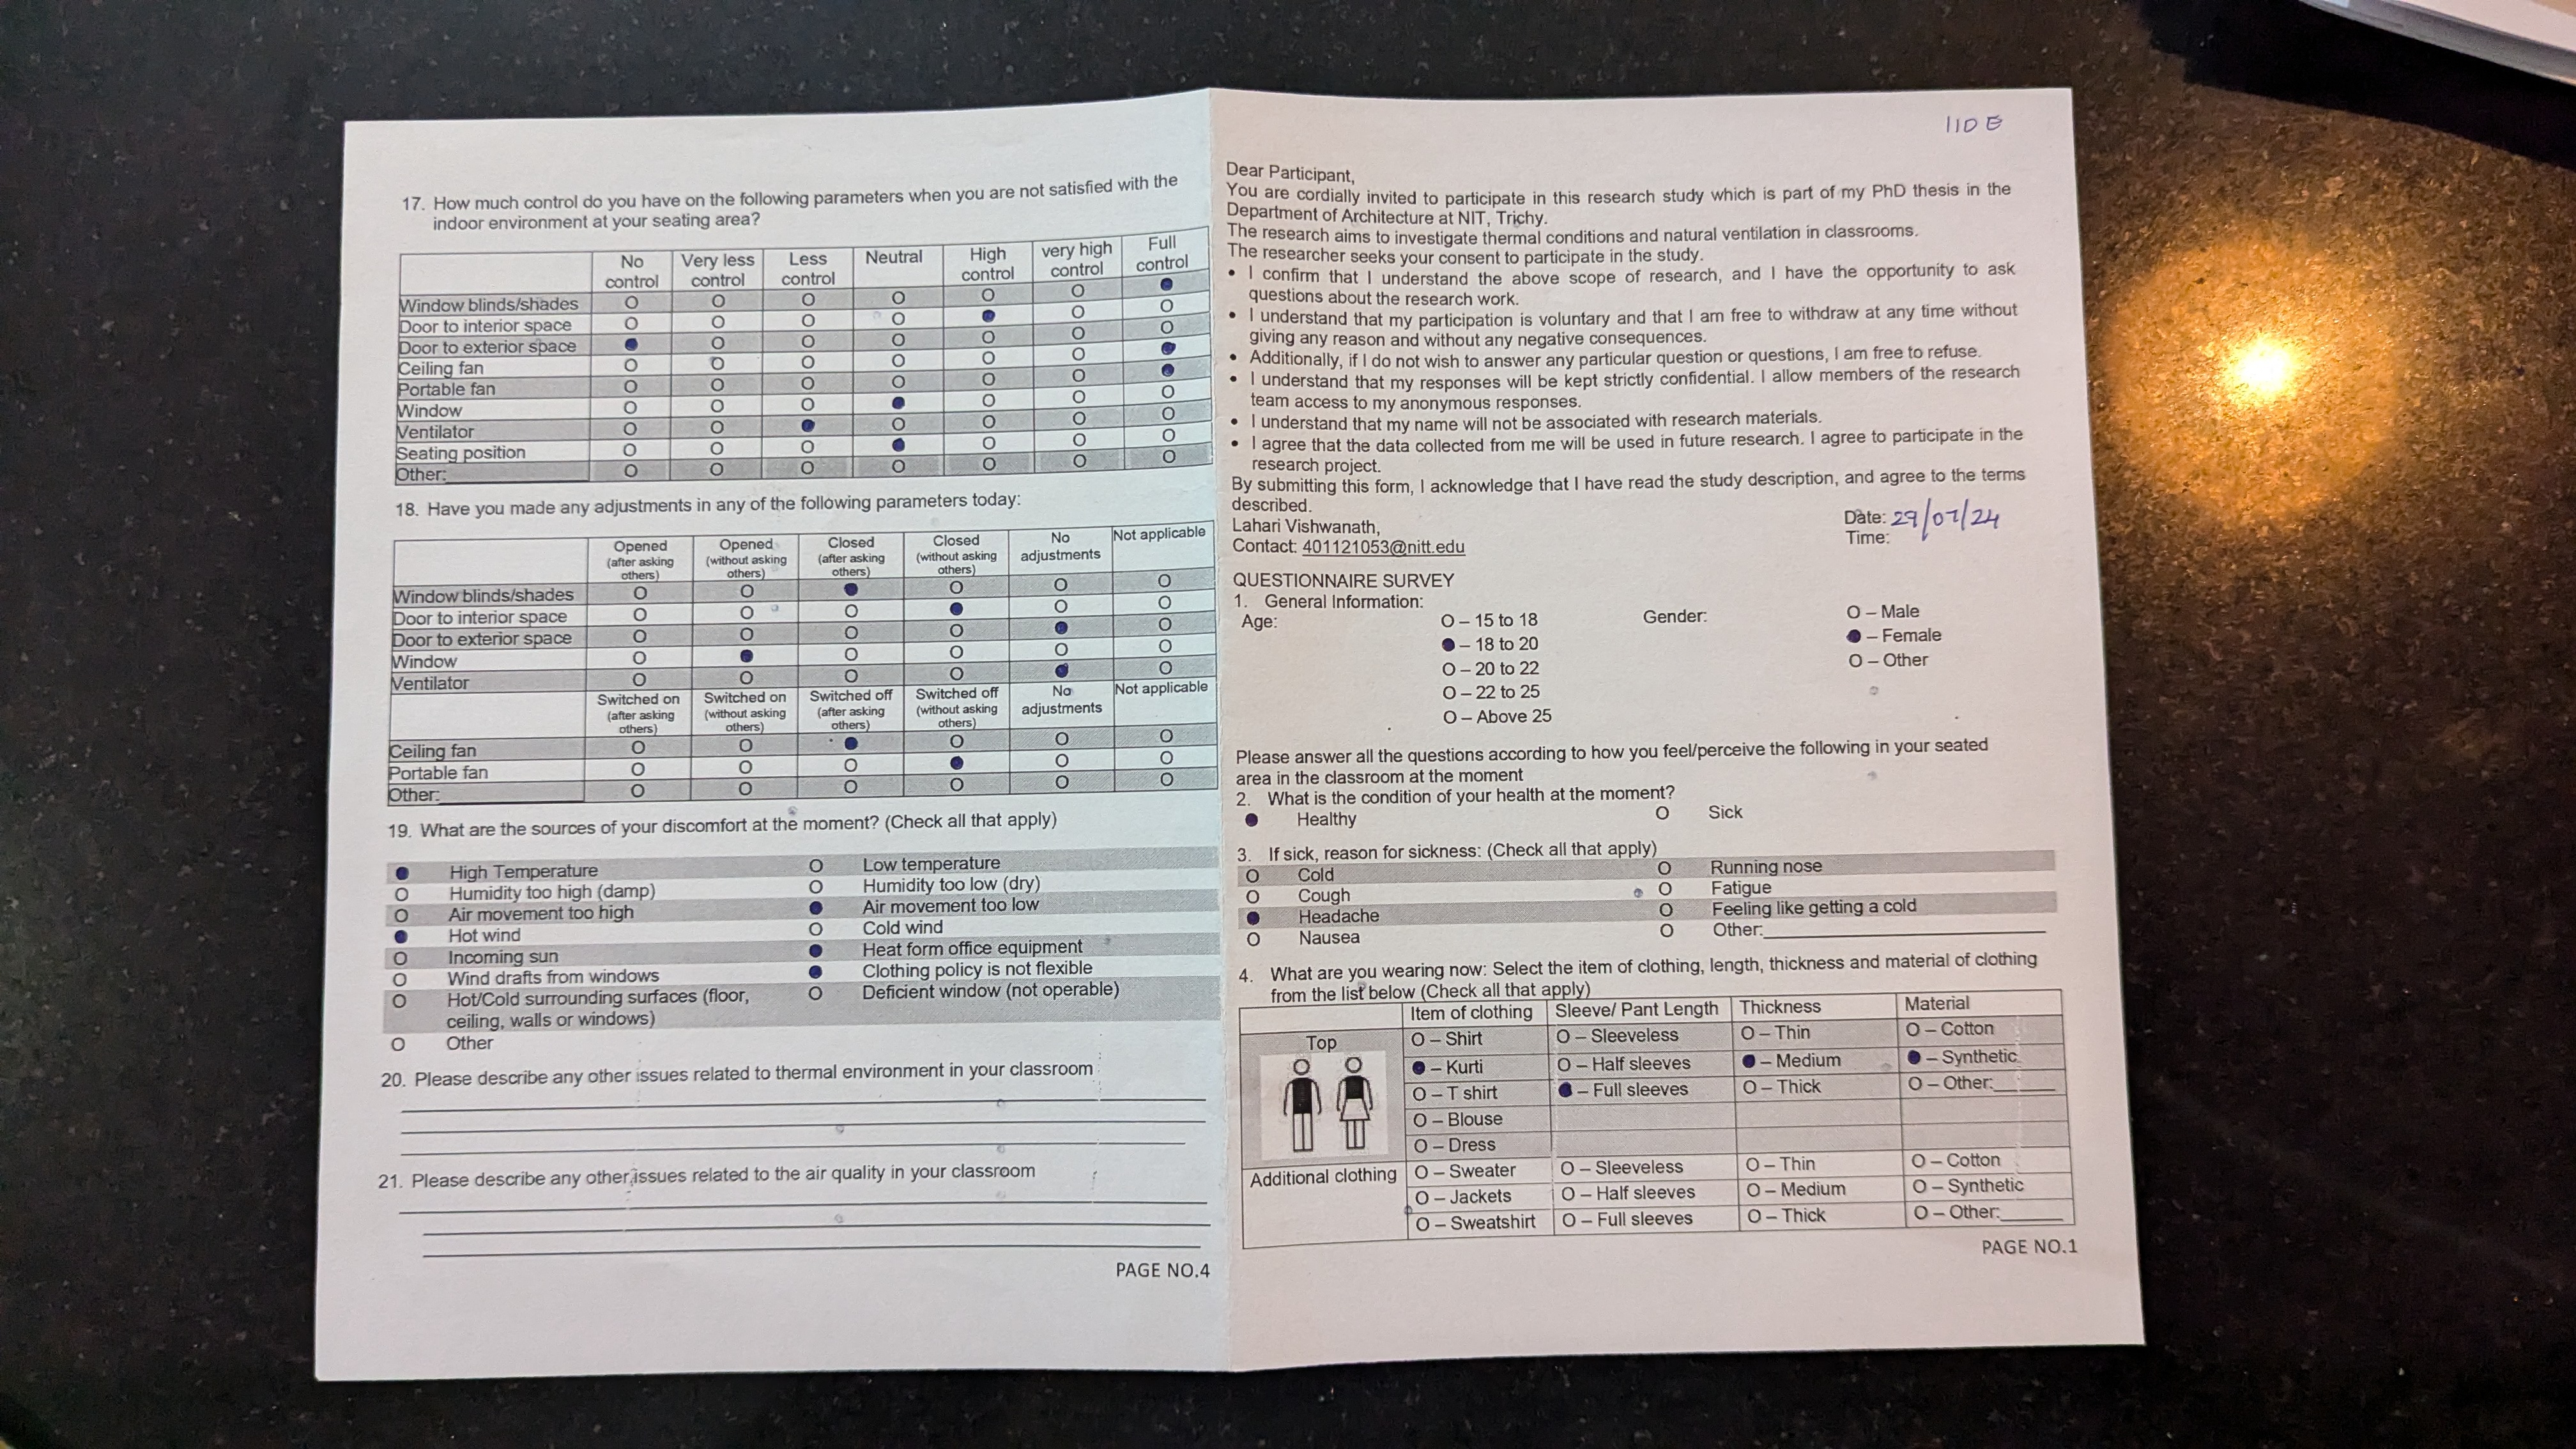 17. How much control do you have on the following parameters when you are not satisfied with the
indoor environment at your seating area?
No control Very less control Less control Neutral High control very high control Full control
Window blinds/shades O O O O O O ●
Door to interior space O O O O ● O O
Door to exterior space ● O O O O O O
Ceiling fan O O O O O O ●
Portable fan O O O O O O ●
Window O O O ● O O O
Ventilator O O ● O O O O
Seating position O O O ● O O O
Other: O O O O O O O
18. Have you made any adjustments in any of the following parameters today:
Opened (after asking others) Opened (without asking others) Closed (after asking others) Closed (without asking others) No adjustments Not applicable
Window blinds/shades O O ● O O O
Door to interior space O O O ● O O
Door to exterior space O O O O ● O
Window O ● O O O O
Ventilator O O O O ● O
Switched on (after asking others) Switched on (without asking others) Switched off (after asking others) Switched off (without asking others) No adjustments Not applicable
Ceiling fan O O ● O O O
Portable fan O O O ● O O
Other: O O O O O O
19. What are the sources of your discomfort at the moment? (Check all that apply)
● High Temperature O Low temperature
O Humidity too high (damp) O Humidity too low (dry)
O Air movement too high ● Air movement too low
● Hot wind O Cold wind
O Incoming sun ● Heat form office equipment
O Wind drafts from windows ● Clothing policy is not flexible
O Hot/Cold surrounding surfaces (floor, O Deficient window (not operable)
ceiling, walls or windows)
O Other
20. Please describe any other issues related to thermal environment in your classroom
21. Please describe any other issues related to the air quality in your classroom
PAGE NO.4
110 E
Dear Participant,
You are cordially invited to participate in this research study which is part of my PhD thesis in the
Department of Architecture at NIT, Trichy.
The research aims to investigate thermal conditions and natural ventilation in classrooms.
The researcher seeks your consent to participate in the study.
• I confirm that I understand the above scope of research, and I have the opportunity to ask
questions about the research work.
• I understand that my participation is voluntary and that I am free to withdraw at any time without
giving any reason and without any negative consequences.
• Additionally, if I do not wish to answer any particular question or questions, I am free to refuse.
• I understand that my responses will be kept strictly confidential. I allow members of the research
team access to my anonymous responses.
• I understand that my name will not be associated with research materials.
• I agree that the data collected from me will be used in future research. I agree to participate in the
research project.
By submitting this form, I acknowledge that I have read the study description, and agree to the terms
described.
Lahari Vishwanath,
Contact: 401121053@nitt.edu
Date: 29/07/24
Time:
QUESTIONNAIRE SURVEY
1. General Information:
Age: O – 15 to 18 Gender: O – Male
● – 18 to 20 ● – Female
O – 20 to 22 O – Other
O – 22 to 25
O – Above 25
Please answer all the questions according to how you feel/perceive the following in your seated
area in the classroom at the moment
2. What is the condition of your health at the moment?
● Healthy O Sick
3. If sick, reason for sickness: (Check all that apply)
O Cold O Running nose
O Cough O Fatigue
● Headache O Feeling like getting a cold
O Nausea O Other:
4. What are you wearing now: Select the item of clothing, length, thickness and material of clothing
from the list below (Check all that apply)
Item of clothing Sleeve/ Pant Length Thickness Material
Top O – Shirt O – Sleeveless O – Thin O – Cotton
● – Kurti O – Half sleeves ● – Medium ● – Synthetic
O – T shirt ● – Full sleeves O – Thick O – Other:
O – Blouse
O – Dress
Additional clothing O – Sweater O – Sleeveless O – Thin O – Cotton
O – Jackets O – Half sleeves O – Medium O – Synthetic
O – Sweatshirt O – Full sleeves O – Thick O – Other:
PAGE NO.1